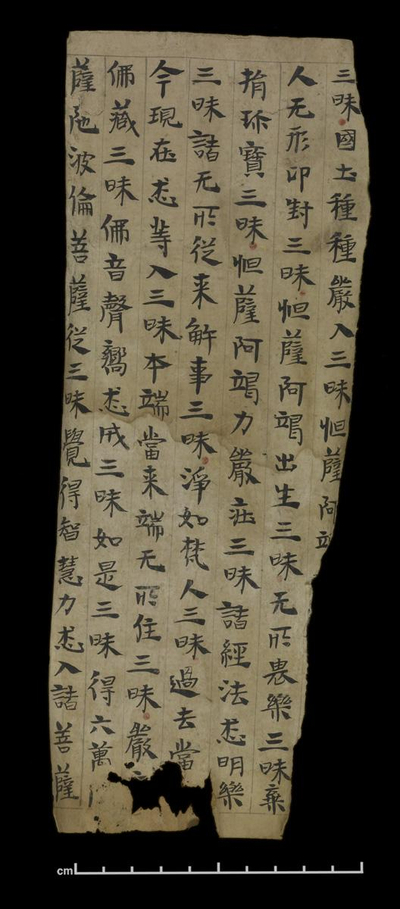 三昧國土種種嚴入三昧怛薩阿竭
人无形印封三昧怛薩阿竭出生三昧无所畏樂三昧棄
捐珎寶三昧怛薩阿竭力嚴疰三昧諸經法悉明樂
三昧諸无所從来解事三昧淨如梵人三昧過去當
今現在悉等入三昧本端當来端无所住三昧嚴
佛藏三昧佛音聲嚮悉成三昧如是三昧得六萬
薩陁波倫菩薩從三昧覺得智慧力悉入諸菩薩
cm